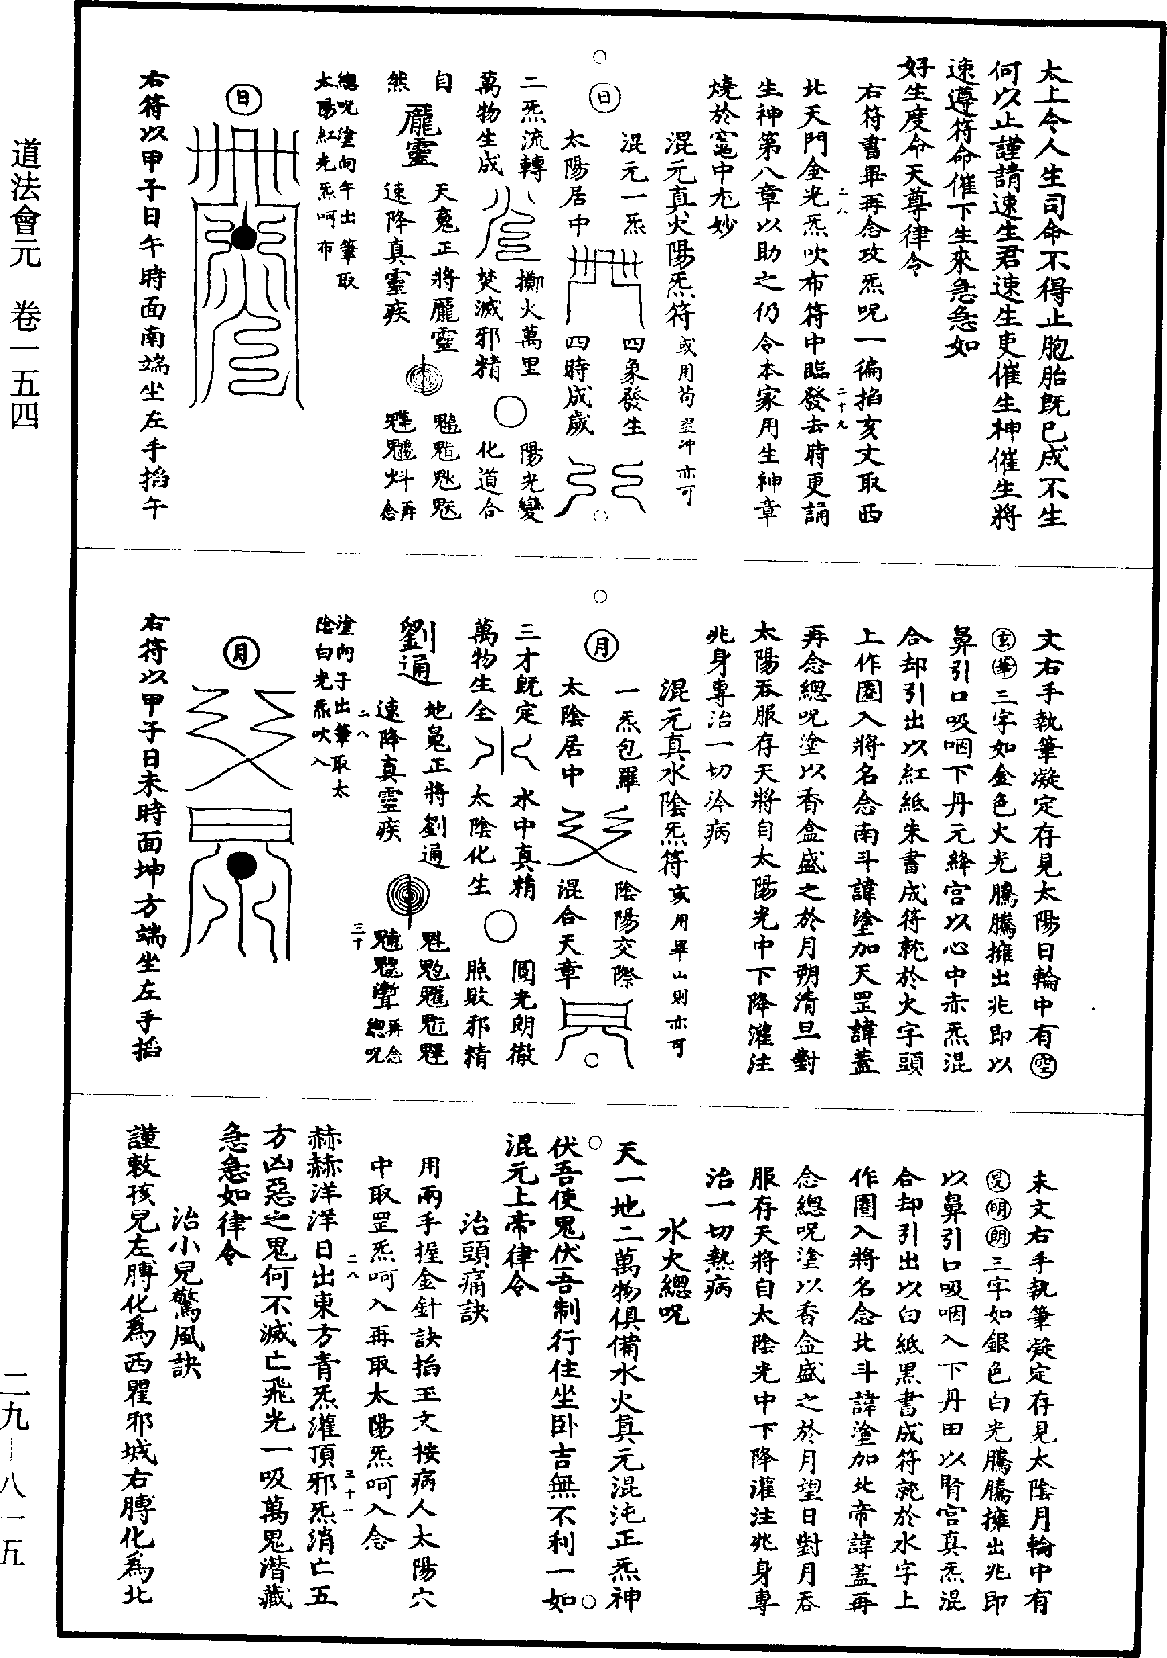 道法會元　卷一五四
二九—八一五
太上令人生司命不得止胞胎旣已成不生
何以止謹請速生君速生吏催生神催生將
速遵符命催下生來急急如
好生度命天尊律令
右符書畢再念攻炁呪一徧掐亥文取西
北天門金光炁吹布符中臨發去時更誦
二八
二十九
生神第八章以助之仍令本家用生神章
燒於竈中尤妙
混元真火陽炁符或用荀空沖亦可
混元一炁
四象發生
○
日
太陽居中
四時成歲
○
二炁流轉
擲火萬里
陽光變
萬物生成
焚滅邪精
化道合
自
天蒐正將龐靈
然
龐靈
速降真靈疾
再念
總呪塗向午出筆取
太陽紅光炁呵布
日
右符以甲子日午時面南端坐左手掐午
文右手執筆凝定存見太陽日輪中有
三字如金色火光騰騰擁出兆即以
鼻引口吸咽下丹元絳宮以心中赤炁混
合却引出以紅紙朱書成符就於火字頭
上作圈入將名念南斗諱塗加天罡諱蓋
再念總呪塗以香盒盛之於月朔清旦對
太陽吞服存天將自太陽光中下降灌注
兆身專治一切冷病
混元真水陰炁符亥用畢山則亦可
一炁包羅
陰陽交際
○
月
太陰居中
混合天章
三才旣定
水中真精
圓光朗徹
萬物生全
太陰化生
照敗邪精
地蒐正將劉通
劉通
速降真靈疾
再念總呪
三十
塗向子出筆取太
陰白光炁吹入
二八
月
右符以甲子日未時面坤方端坐左手掐
未文右手執筆凝定存見太陰月輪中有
三字如銀色白光騰騰擁出兆即
以鼻引口吸咽入下丹田以腎宮真炁混
合却引出以白紙黑書成符就於水字上
作圈入將名念北斗諱塗加北帝諱蓋再
念總呪塗以香盒盛之於月望日對月吞
服存天將自太陰光中下降灌注兆身專
治一切熱病
水火總呪
天一地二萬物俱備水火真元混沌正炁神
伏吾使鬼伏吾制行住坐臥吉無不利一如
混元上帝律令
治頭痛訣
用兩手握金針訣掐玉文按病人太陽穴
中取罡炁呵入再取太陽炁呵入念
二八
三十一
赫赫洋洋日出東方青炁灌頂邪炁消亡五
方凶惡之鬼何不滅亡飛光一吸萬鬼潛藏
急急如律令
治小兒驚風訣
謹敕孩兒左膊化為西瞿邪城右膊化為北